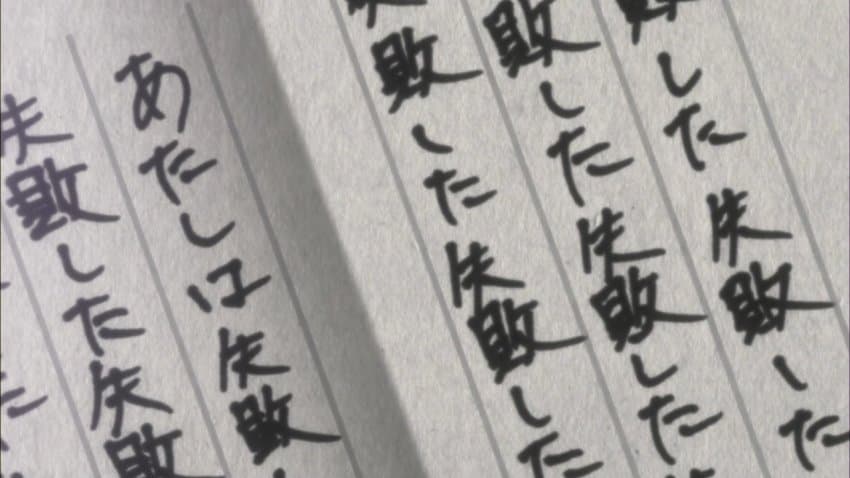 敗した失敗した
敗した失敗した
失敗した失敗した
あたしは失敗
失敗した失敗